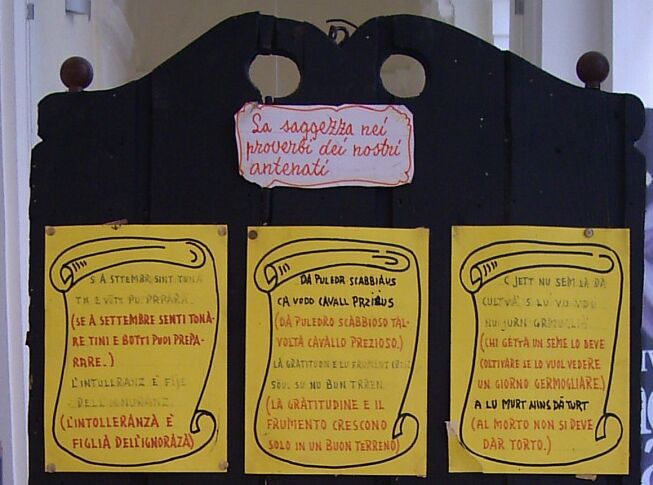 La saggezza nei
proverbi dei nostri
antenati
S A STTEMBR SINT TONA
TN E VUTT PU PRPARÀ.
(SE A SETTEMBRE SENTI TONA-
RE TINI E BOTTI PUOI PREPA-
RARE.)
L'INTULLERANZ È FIJE
DELL'IGNORANZ.
(L'INTOLLERANZA È
FIGLIA DELL'IGNORAZA)
DA PULEDR SCABBIÀUS
CA VODD CAVALL PRZIÏUS
(DA PULEDRO SCABBIOSO TAL-
VOLTA CAVALLO PREZIOSO.)
LA GRATITUDN E LU FRUMENT
SOUL SU NU BUN TRREN.
(LA GRATITUDINE E IL
FRUMENTO CRESCONO
SOLO IN UN BUON TERRENO)
C JETT NU SEM LA DA
CULTVÀ S LU VO
NU JURN
(CHI GETTA UN SEME LO DEVE
COLTIVARE SE LO VUOL VEDERE
UN GIORNO GERMOGLIARE)
A LU MURT NINS DÀ TURT
(AL MORTO NON SI DEVE
DAR TORTO.)